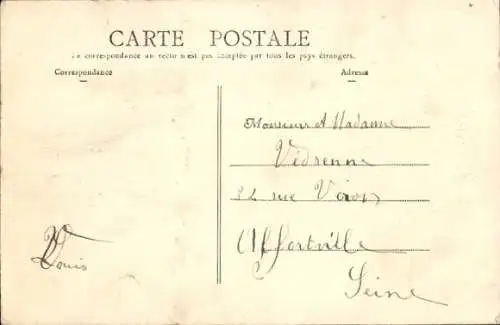 CARTE POSTALE
La correspondance au recto n'est pas acceptée par tous les pays étrangers.
Correspondance
Adresse
Monsieur et Madame
Vedrenne
32 rue
Alfortville
Seine
Louis